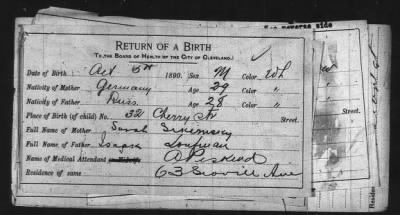 see reverse side
RETURN OF A BIRTH
(TO THE BOARD OF HEALTH OF THE CITY OF CLEVELAND.)
Date of Birth Oct 5th 1890. Sex M Color Wh
Nativity of Mother Germany Age 29 Color "
Nativity of Father Russ. Age 28 Color "
Place of Birth (of child) No. 32 Cherry St Street.
Full Name of Mother Sarah
Full Name of Father
Name of Medical Attendant or Midwife
Residence of same 63 Scovill Ave
Street.